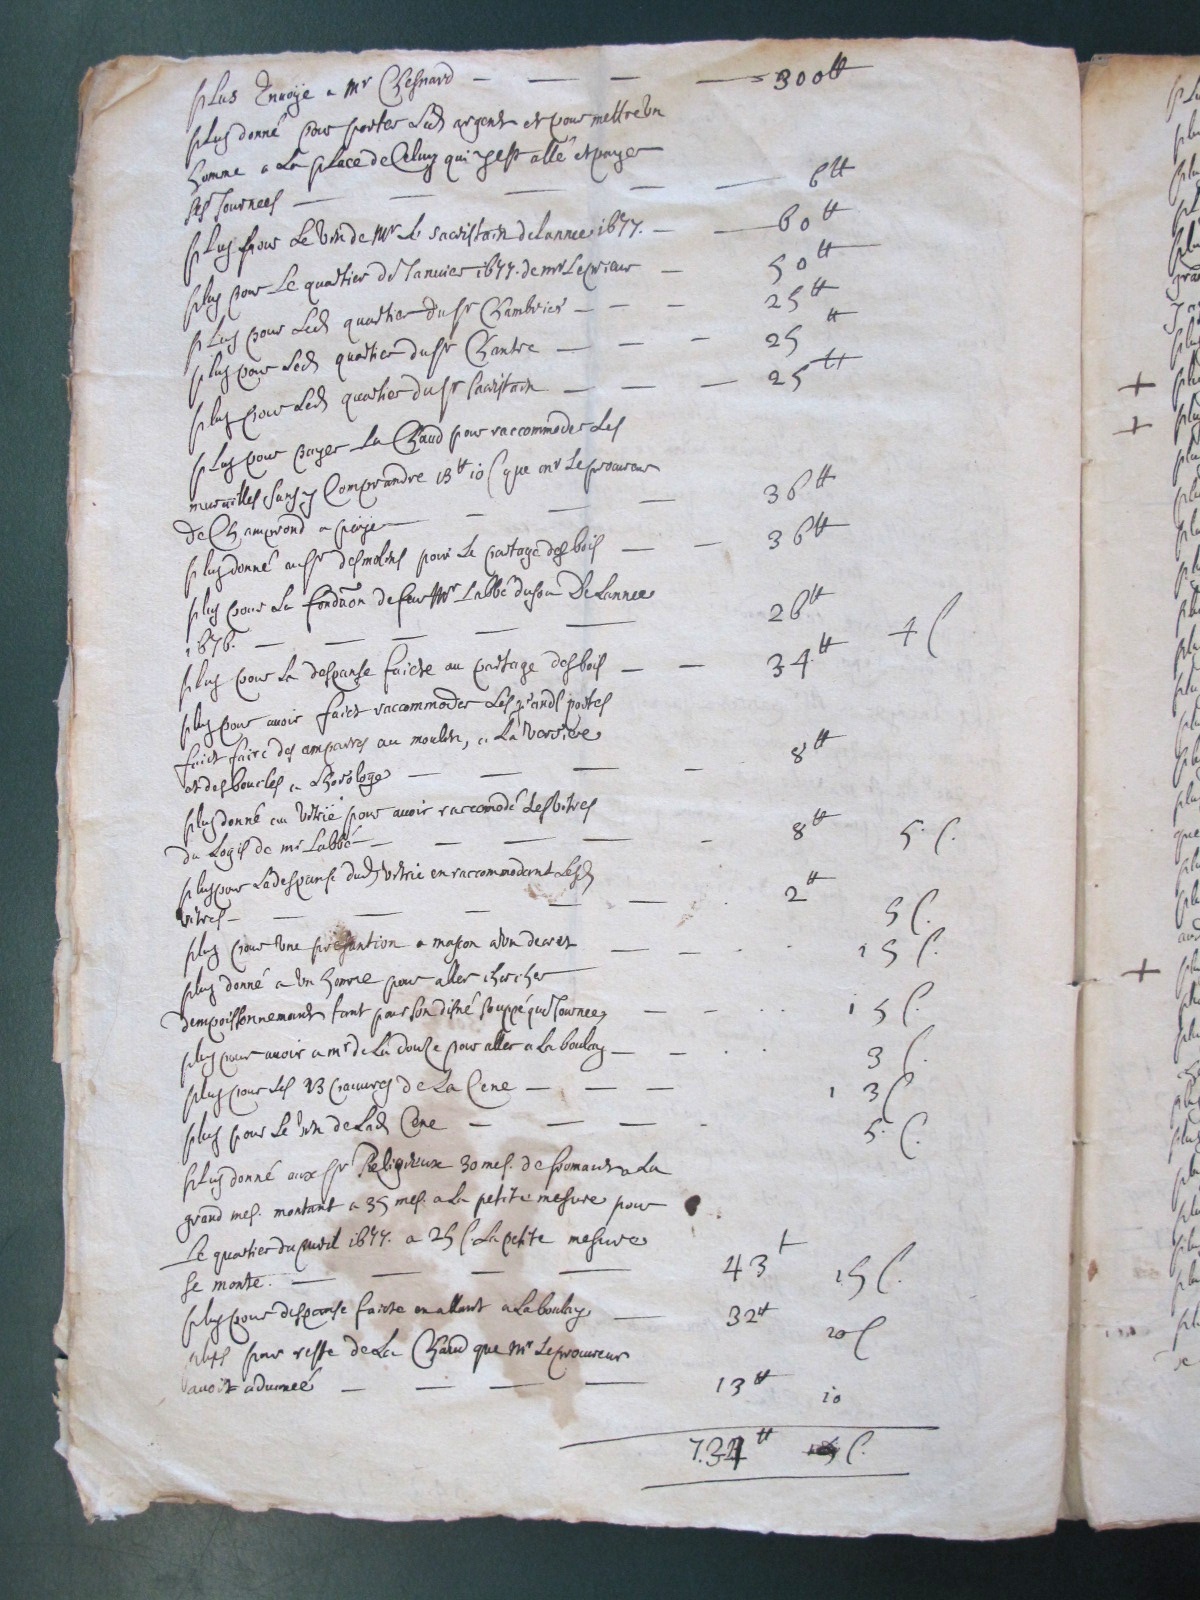 plus Envoÿé a Mr Chesnard — — — 300tt
plus donné pour porter Led argent et pour mettre un
homme a La place de Celuy qui y est allé et payer
ses Journees — — — 6tt
plus pour Le vin de Mr Le sacristain de lannee 1677. — 60tt
plus pour Le quartier de Janvier 1677. de mr Le prieur — 50tt
plus pour Led quartier du sr Chambrier — — — 25tt
plus pour Led quartier du sr Chantre — — — 25tt
plus pour Led quartier du sr sacristain — — — 25tt
plus pour payer La Chaud pour raccommoder Les
murailles sans y Comprandre 13tt 10 s que mr Le procureur
de Champrond a payé — — — 36tt
plus donné au sr desmolins pour Le partage des bois — — 36tt
plus pour La fondaon de feu Mr Labbé De Lannee
1676. — — — — 26tt 4 s
plus pour La despanse faicte au partage des bois — — 34tt
plus pour avoir faict raccommoder Les grands portes
faict faire des au moulin, a La
et des boucles a Lhorologe — — — 8tt
plus donné au vitrié pour avoir raccomodé Les vitres
du Logis de mr Labbé — — — 8tt 5 s.
plus pour La despanse dud vitrié en raccommodant Lesd
vitres — — — — 2tt 5 s.
plus pour Une a mason — 15 s.
plus donné a Un homme pour aller chercher
dempoissonnement tant pour son disné souppé que Journee — — 15 s.
plus pour avoir a mr de La pour aller a La boulay — — 3 s.
plus pour Les 13 pauvres de La Cene — — — 13 s
plus pour Le vin de Lad Cene — — — 5 s.
plus donné aux srs Religieux 30 mes. de fromant a La
grand mes. montant a 35 mes. a La petite mesure pour
Le quartier du avril 1677. a 25 s. La petite mesure
se monte. — — — 43t 15 s.
plus pour despanse faicte en allant a La boulay — 32tt 10 s
plus pour reste de La Chaud que Mr Le procureur
avoit — — — — 13tt 10
734tt s.